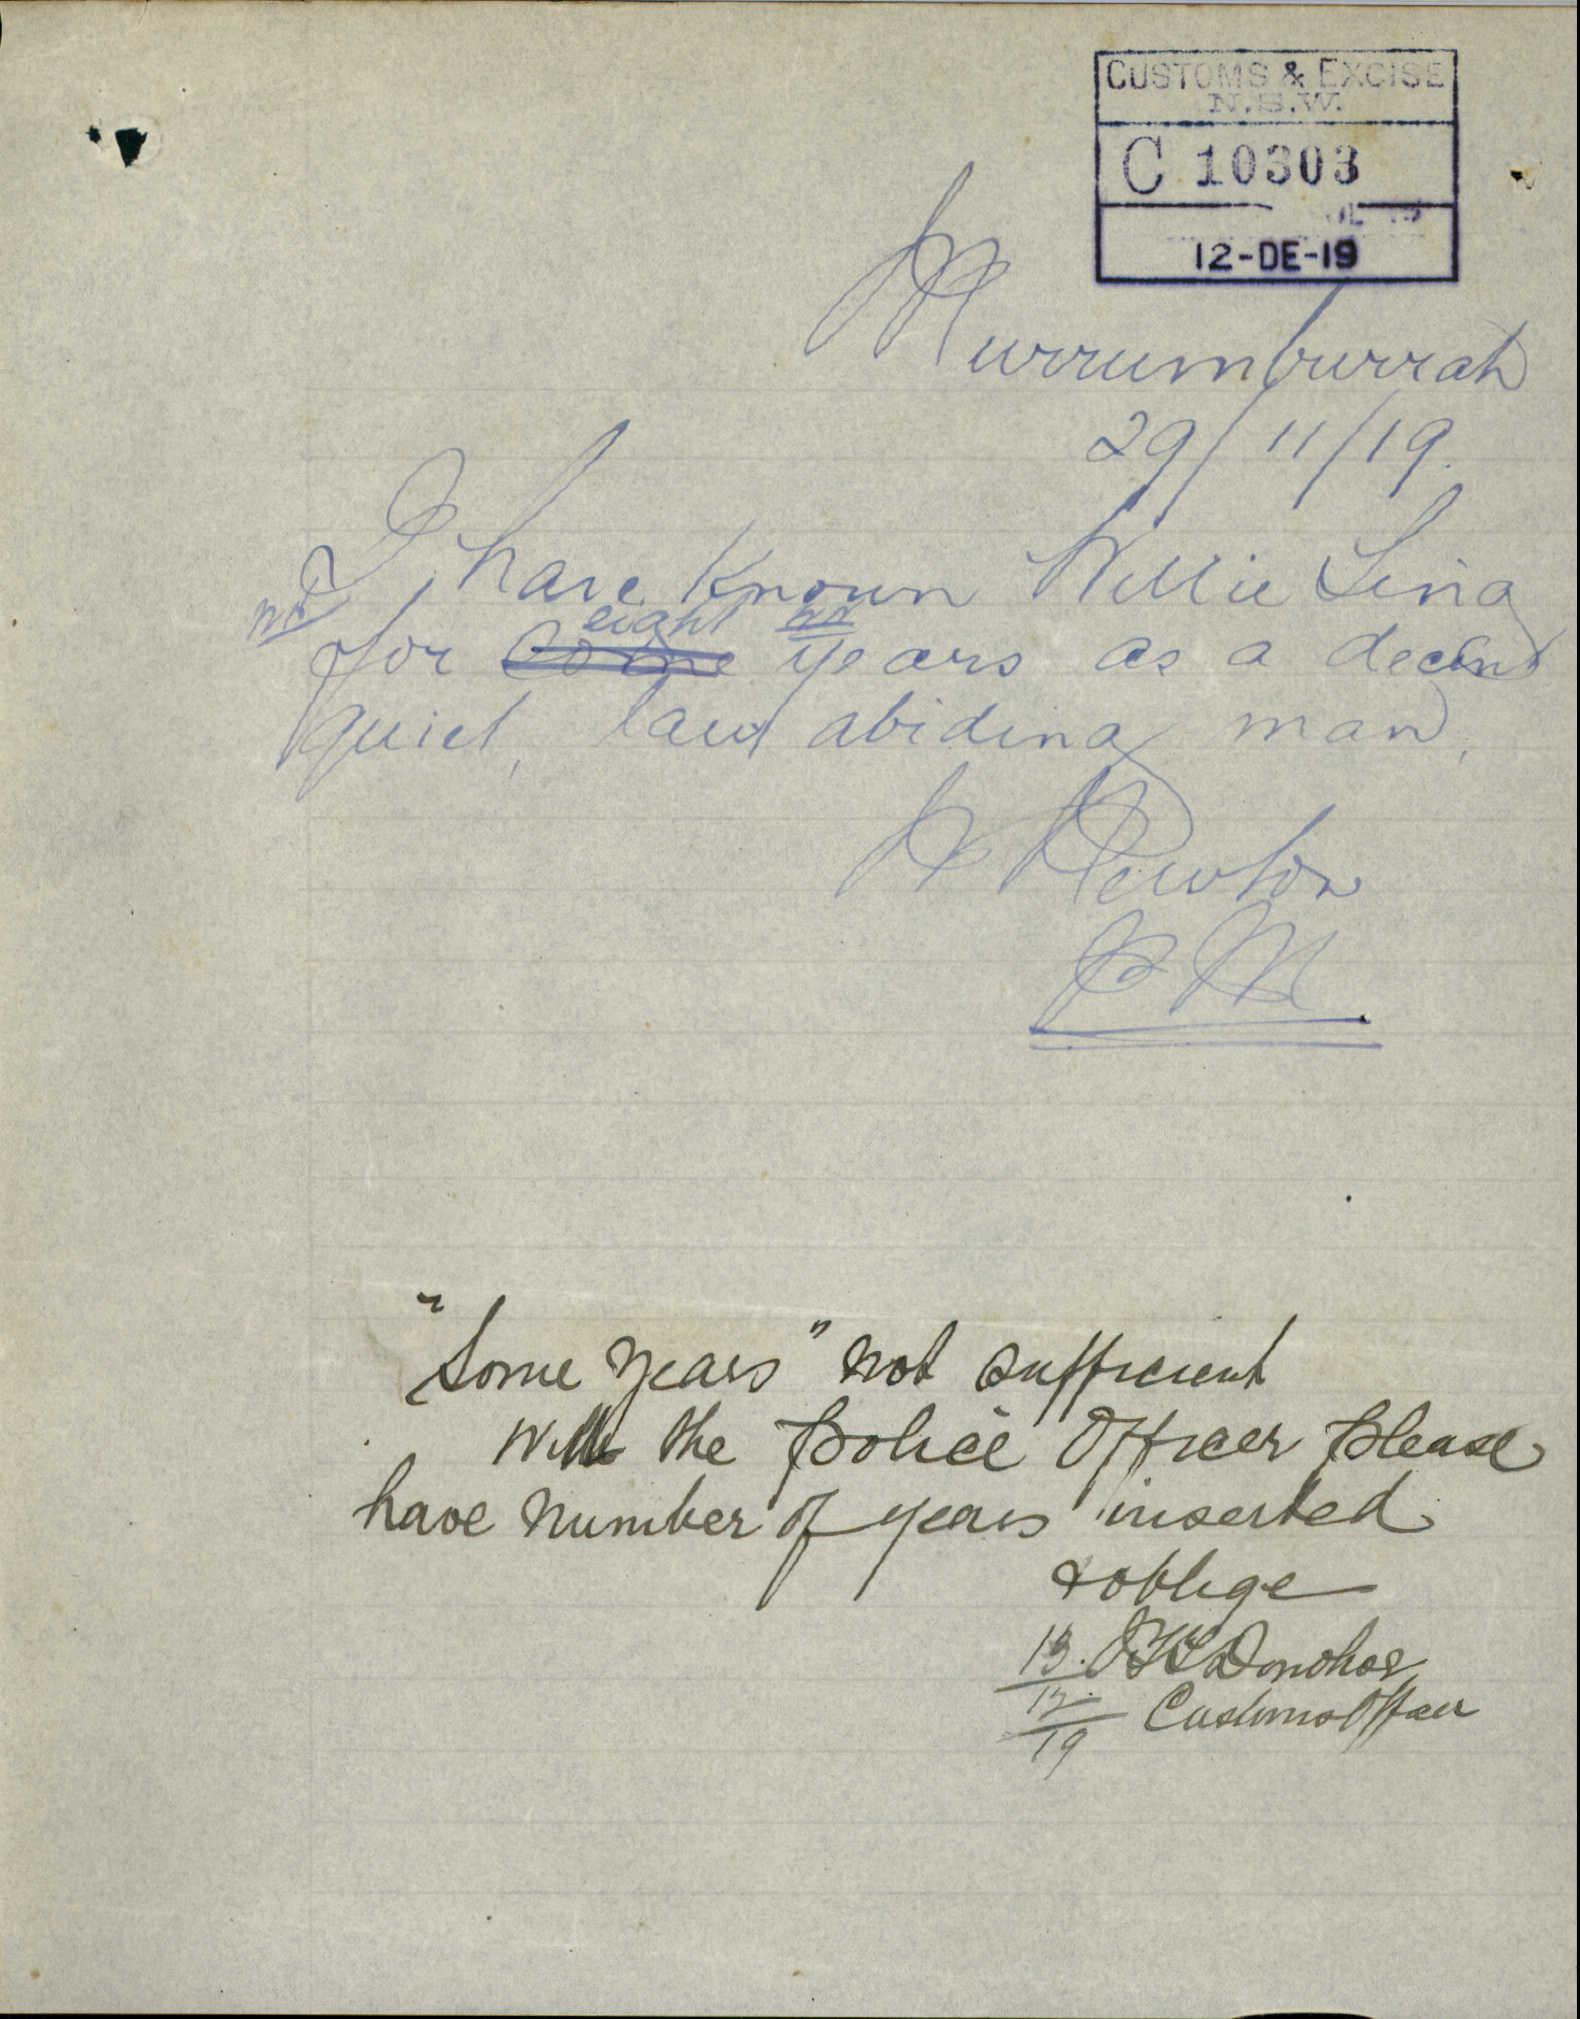 CUSTOMS & EXCISE
N.S.W.
C 10303
12-DE-19
Murrumburrah
29/11/19.
I have known Willie Ling
eight
for some years as a decent
quiet, law abiding man,
Newton
P M
"Some years" not sufficient
Will the Police Officer please
have number of years inserted
& oblige
13. Donohoe
12. Customs Officer
19